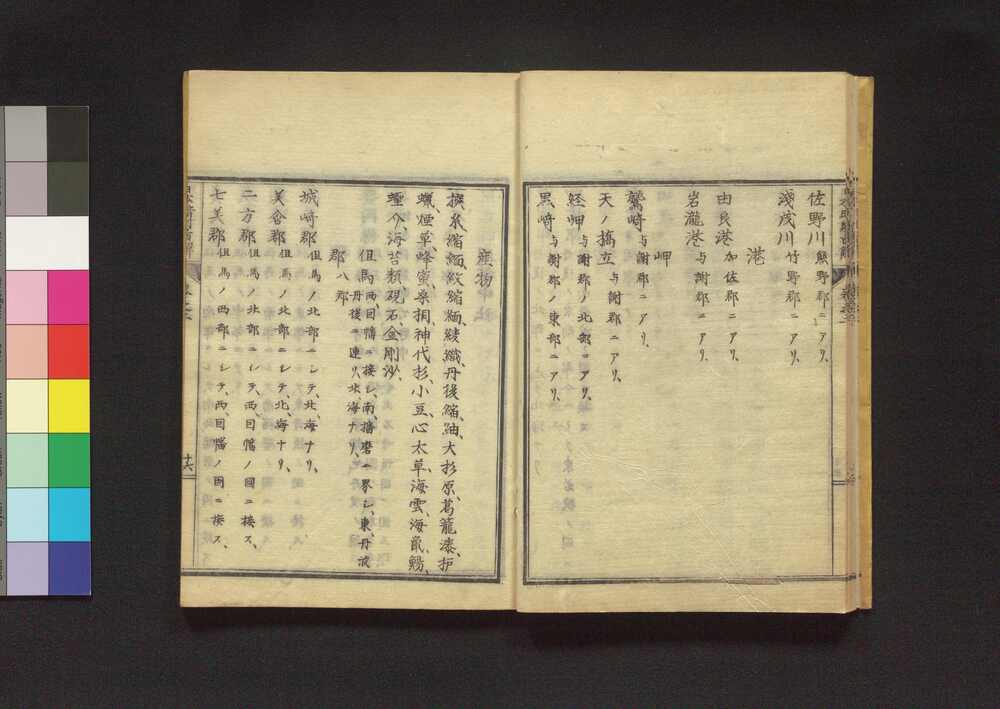 佐野川 熊野郡ニアリ、
淺茂川 竹野郡ニアリ、
港
由良港 加佐郡ニアリ、
岩瀧港 与謝郡ニアリ、
岬
鷲﨑 与謝郡ニアリ、
天ノ橋立 与謝郡ニアリ、
経岬 与謝郡ノ北部ニアリ、
黒﨑 与謝郡ノ東部ニアリ、
産物
撰糸、縮緬、紋縮緬、綾織、丹後縮、紬、大杉原、葛籠、漆、护
蝋、煙草、蜂蜜、桑、椢、神代杉、小豆、心太草、海雲、海鼠、鰯、
蟶、介、海苔類、硯石、金剛沙、
但馬 西、因幡ニ接シ、南、播磨ニ界シ、東、丹波
丹後ニ連リ、北、海ナリ、
郡 八郡
城﨑郡 但馬ノ北部ニシテ、北、海ナリ、
美含郡 但馬ノ北部ニシテ、北、海ナリ、
二方郡 但馬ノ北部ニシテ、西、因幡ノ國ニ接ス、
七美郡 但馬ノ西部ニシテ、西、因幡ノ国ニ接ス、
十六